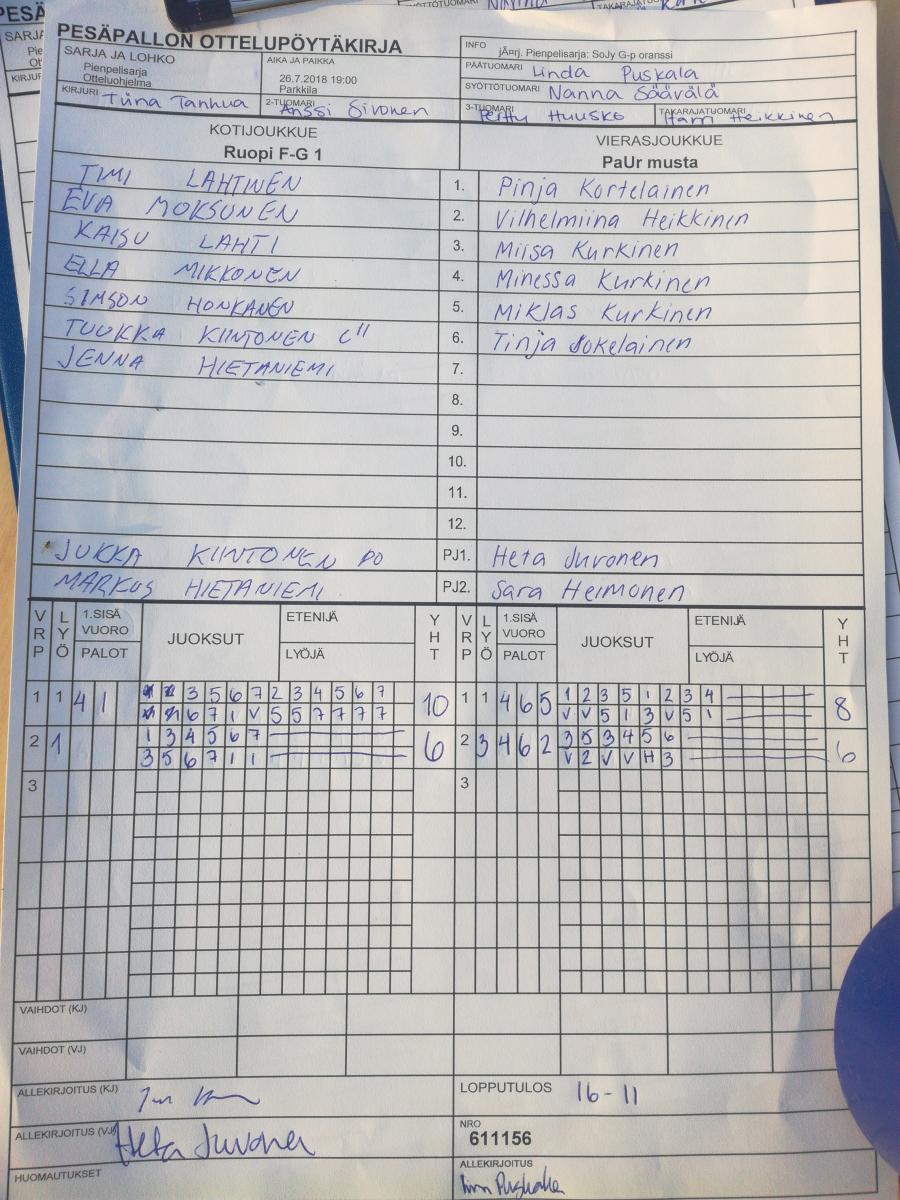 PESÄPALLON OTTELUPÖYTÄKIRJA
SARJA JA LOHKO
Pienpelisarja
Otteluohjelma
AIKA JA PAIKKA
26.7.2018 19:00
Parkkila
INFO jÃ¤rj. Pienpelisarja: SoJy G-p oranssi
PÄÄTUOMARI Linda Puskala
SYÖTTÖTUOMARI Nanna Säävälä
KIRJURI Tiina Tanhua
2-TUOMARI Anssi Sivonen
3-TUOMARI Perttu Huusko
TAKARAJATUOMARI Harri Heikkinen
KOTIJOUKKUE
Ruopi F-G 1
VIERASJOUKKUE
PaUr musta
TIMI LAHTINEN 1. Pinja Kortelainen
EVA MOKSUNEN 2. Vilhelmiina Heikkinen
KAISU LAHTI 3. Miisa Kurkinen
ELLA MIKKONEN 4. Minessa Kurkinen
SIMSON HONKANEN 5. Miklas Kurkinen
TUUKKA KIINTONEN C" 6. Tinja Jokelainen
JENNA HIETANIEMI 7.
8.
9.
10.
11.
12.
JUKKA KIINTONEN PO PJ1. Heta Juvonen
MARKUS HIETANIEMI PJ2. Sara Heimonen
VRP LYÖ 1.SISÄ VUORO PALOT JUOKSUT ETENIJÄ LYÖJÄ YHT VRP LYÖ 1.SISÄ VUORO PALOT JUOKSUT ETENIJÄ LYÖJÄ YHT
1 1 4 1 3 5 6 7 2 3 4 5 6 7 10 1 1 4 6 5 1 2 3 5 1 2 3 4 8
6 7 1 V 5 5 7 7 7 7 V V 5 1 3 V 5 1
2 1 1 3 4 5 6 7 6 2 3 4 6 2 3 5 3 4 5 6 6
3 5 6 7 1 1 V 2 V V H 3
3 3
VAIHDOT (KJ)
VAIHDOT (VJ)
ALLEKIRJOITUS (KJ)
LOPPUTULOS 16-11
ALLEKIRJOITUS (VJ) Heta Juvonen
NRO
611156
HUOMAUTUKSET
ALLEKIRJOITUS